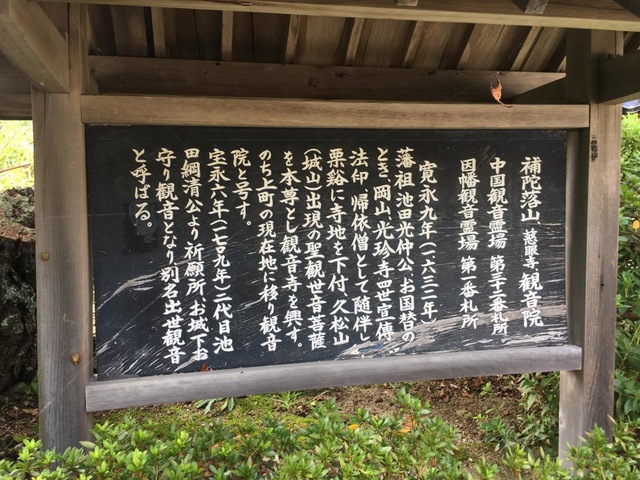 補陀落山 慈眼寺 観音院
中国観音霊場 第三十二番札所
因幡観音霊場 第一番札所
寛永九年(一六三二年)
藩祖池田光仲公、お国替の
とき、岡山光珍寺四世宣伝
法印、帰依僧として随伴し
栗谿に寺地を下付、久松山
(城山)出現の聖観世音菩薩
を本尊とし観音寺を興す。
のち上町の現在地に移り観音
院と号す。
宝永六年(一七〇九年)二代目池
田綱清公より祈願所、お城下お
守り観音となり別名出世観音
と呼ばる。